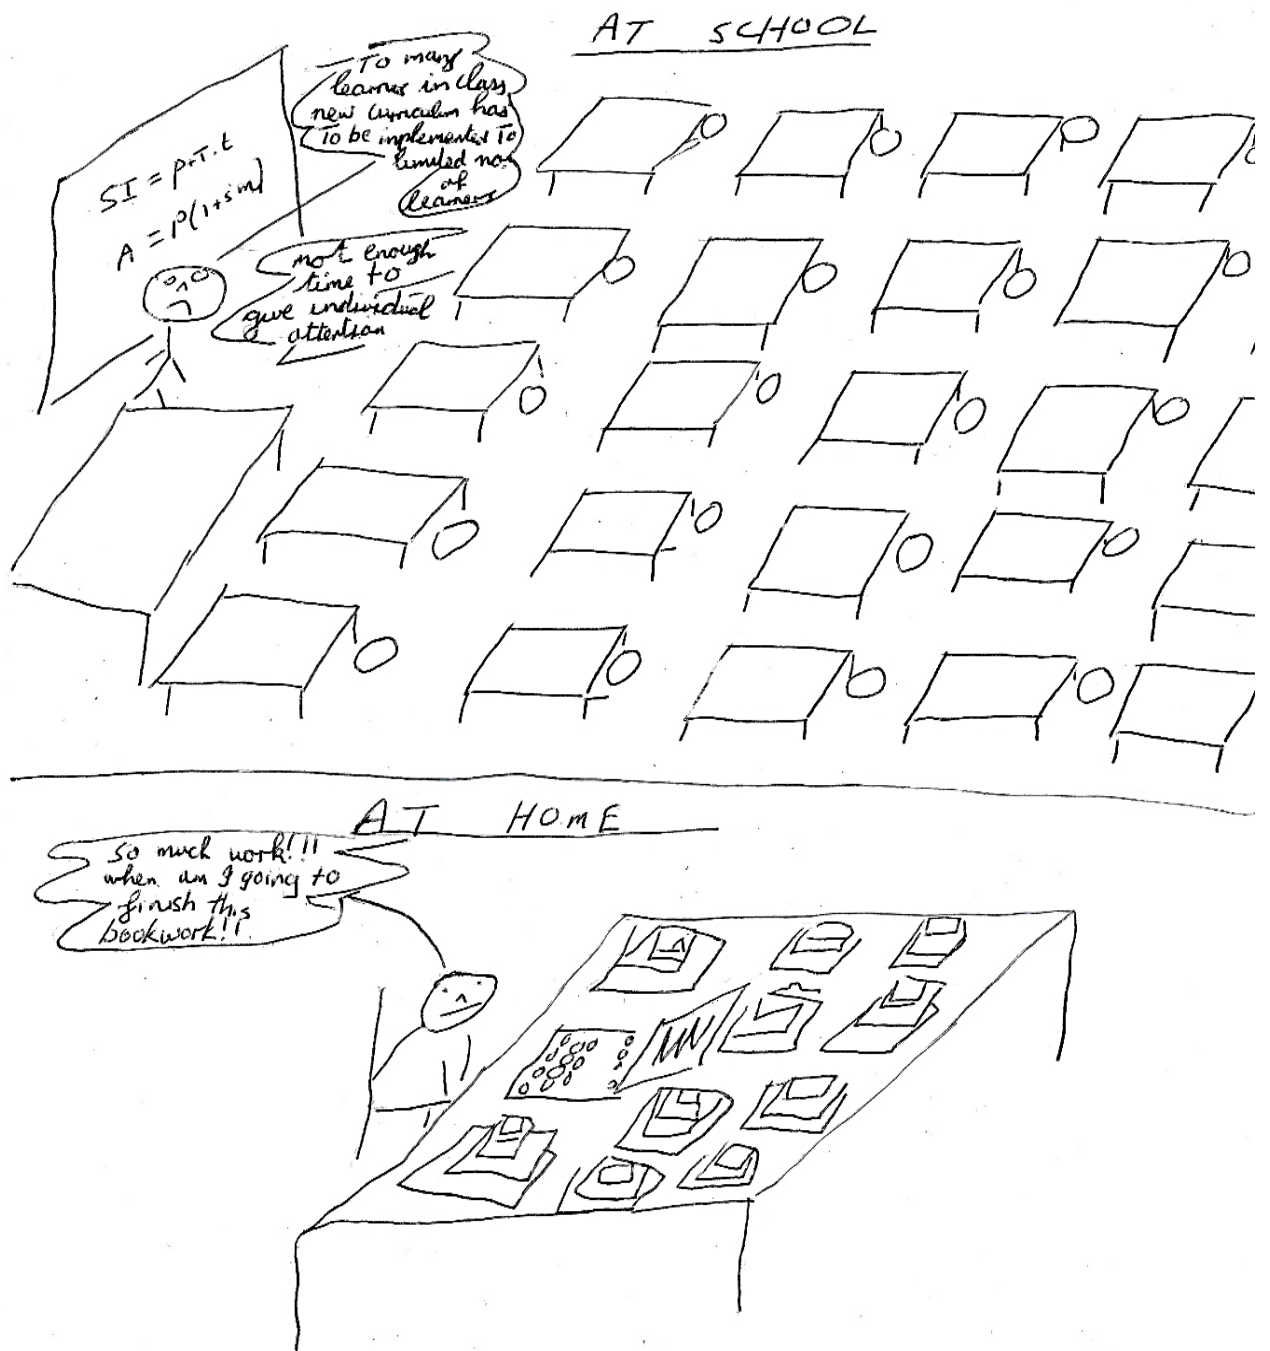 AT SCHOOL
To many
learner in class
new curriculum has
To be implemented To
limited no.
of
learners
SI = p.r.t
A = P(1+
not enough
time to
give individual
attention
AT HOME
So much work!!!
when am I going to
finish this
bookwork!!